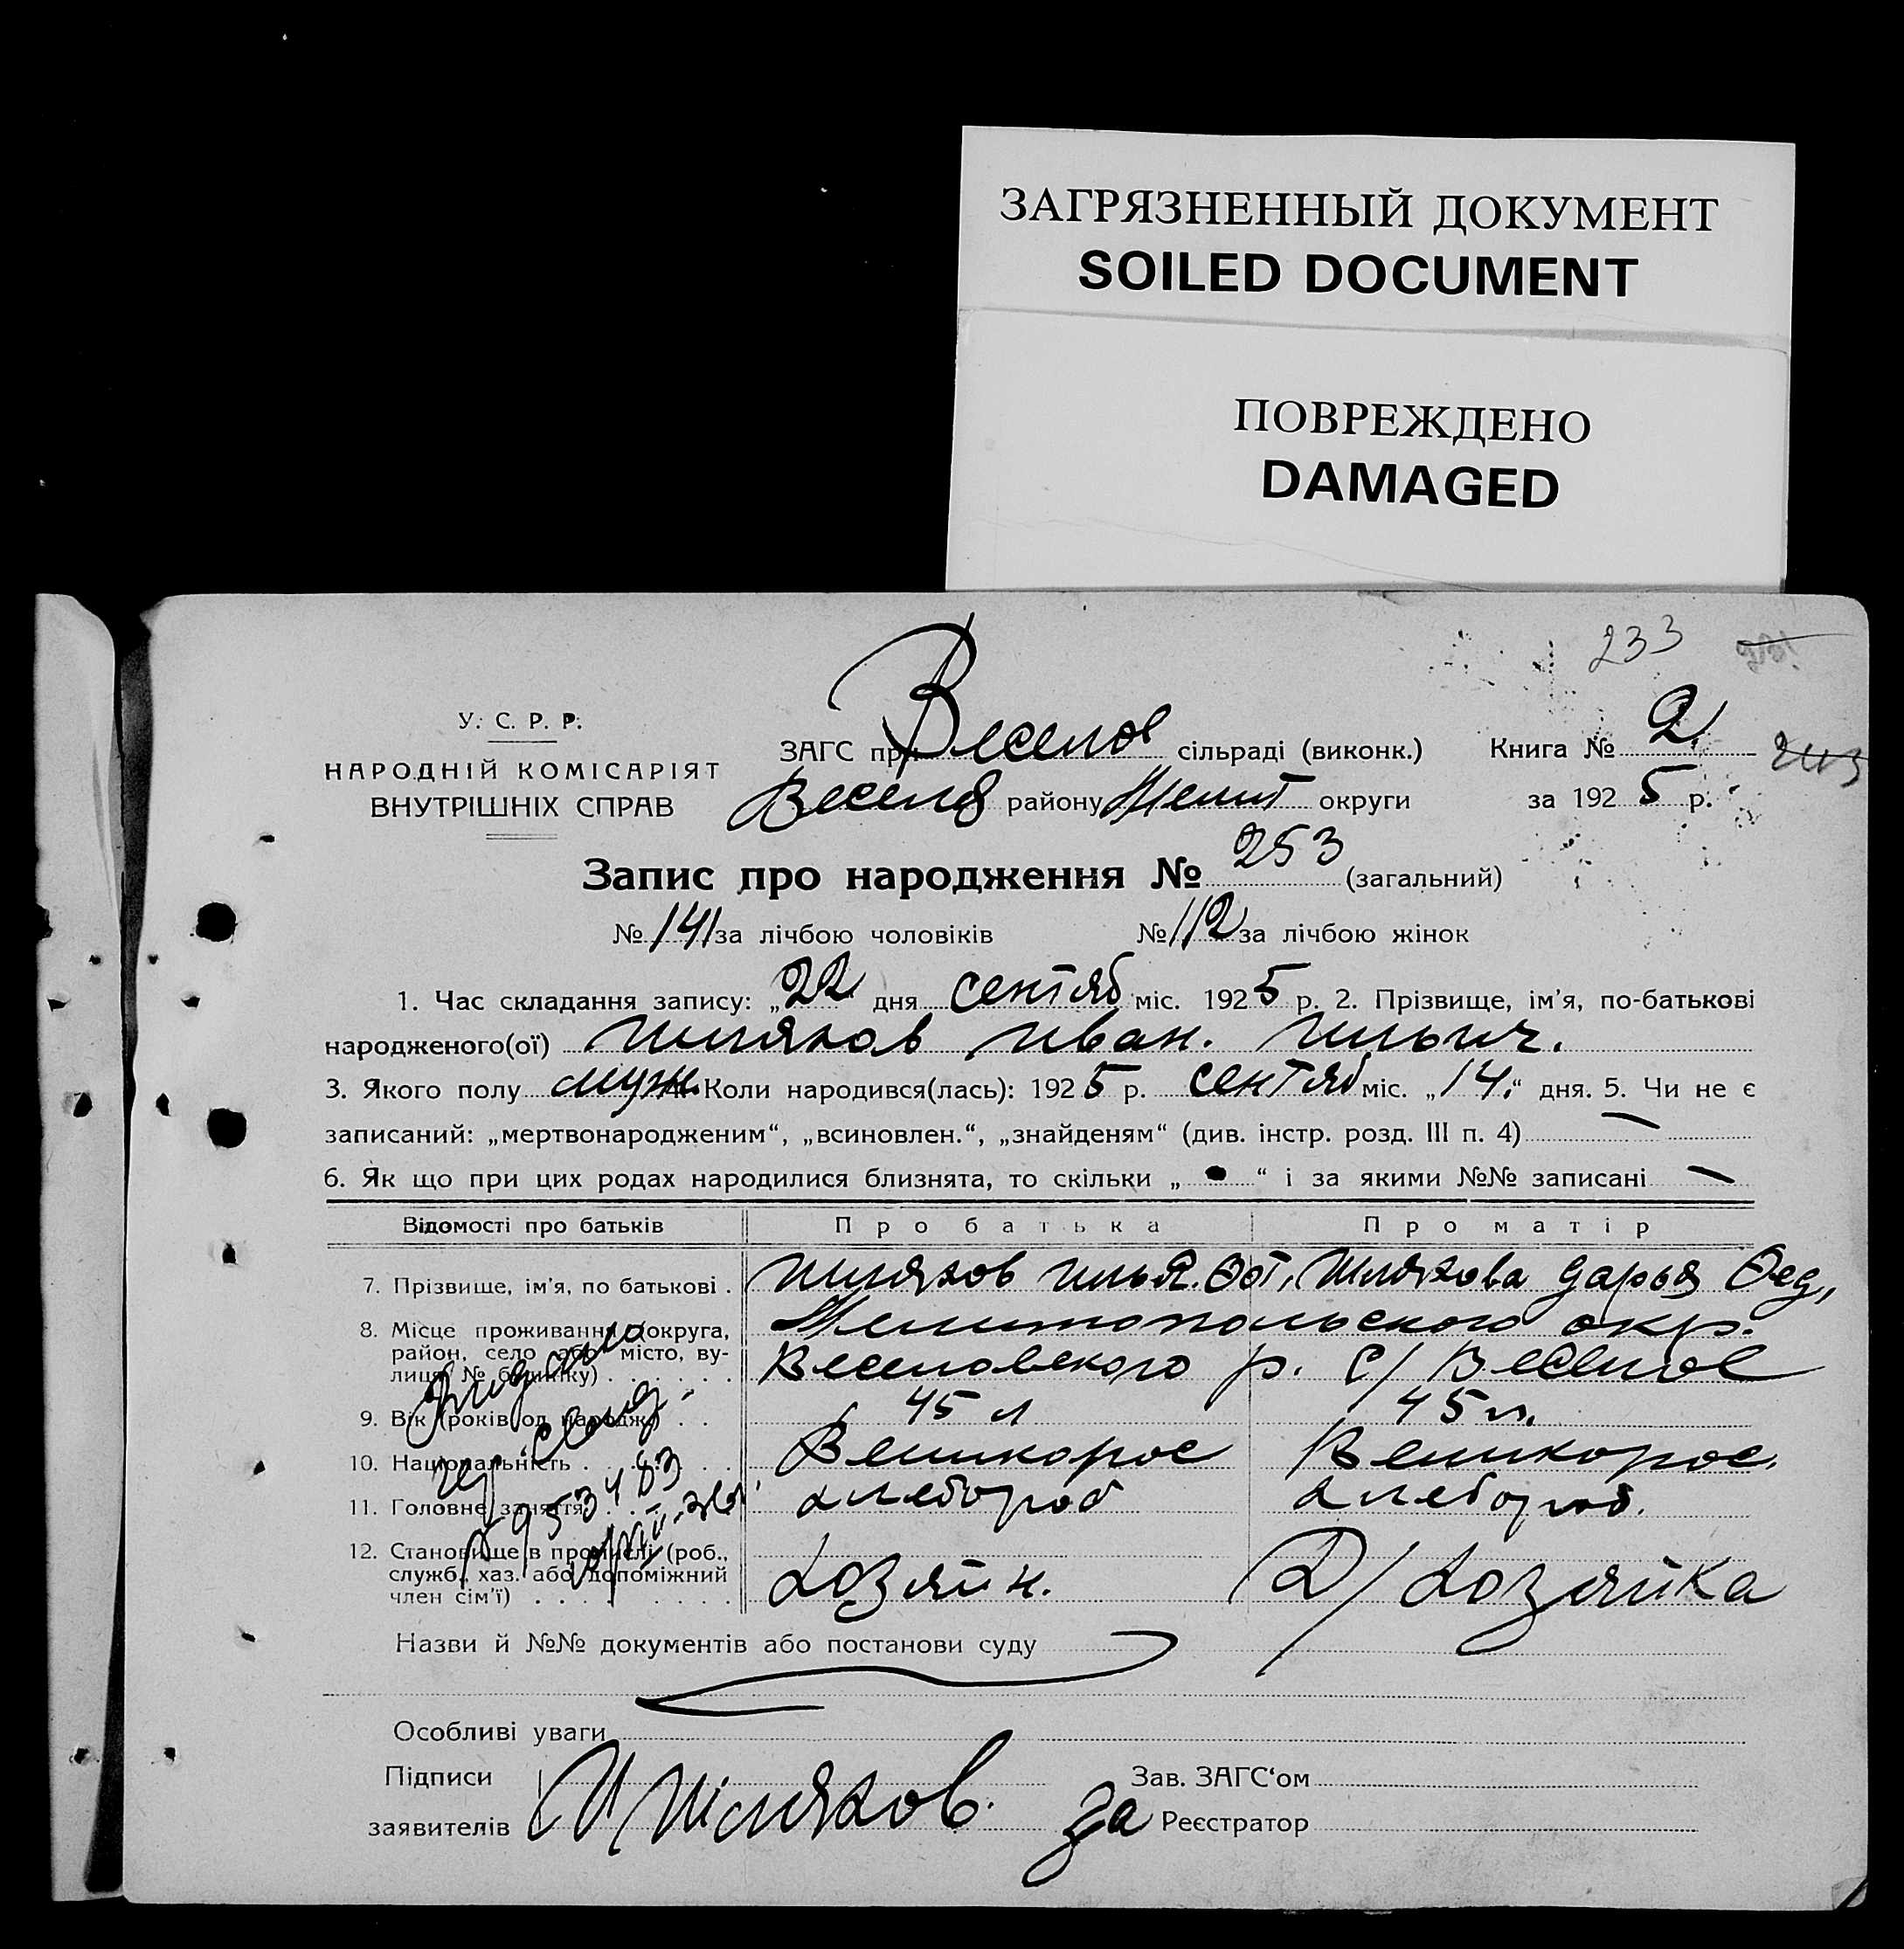 ЗАГРЯЗНЕННЫЙ ДОКУМЕНТ
SOILED DOCUMENT
ПОВРЕЖДЕНО
DAMAGED
233
У. С. Р. Р.
НАРОДНІЙ КОМІСАРІЯТ
ВНУТРІШНІХ СПРАВ
ЗАГС при Веселов сільраді (виконк.) Книга № 2
Весело району Мелит округи за 192 5 р.
Запис про народження № 253 (загальний)
№ 141 за лічбою чоловіків № 112 за лічбою жінок
1. Час складання запису: „22“ дня сентяб міс. 192 5 р. 2. Прізвище, ім'я, по-батькові
народженого(ої) Шляхов Иван. Ильич.
3. Якого полу муж. 4. Коли народився(лась): 192 5 р. сентяб міс. „14.“ дня. 5. Чи не є
записаний: „мертвонародженим“, „всиновлен.“, „знайденям“ (див. інстр. розд. III п. 4) —
6. Як що при цих родах народилися близнята, то скільки „ “ і за якими №№ записані —
Відомості про батьків Про батька Про матір
7. Прізвище, ім'я, по батькові . Шляхов Илья. Фот, Шляхова Дарья Фед,
8. Місце проживання (округа, район, село або місто, вулиця, № будинку) . . . . . . Мелитопольского окр.
Веселовского р. С/ Веселое
9. Вік (років од народж.) . . 45 л 45 л.
10. Національність . . . . . . Великорос Великорос.
11. Головне заняття . . . . . хлебороб хлебороб.
12. Становище в промислі (роб., служб., хаз. або допоміжний член сім'ї) . . . . . . . . хозяин. Д/хозяйка
Назви й №№ документів або постанови суду
Особливі уваги
Підписи
заявителів И Шляхов.
Зав. ЗАГС'ом
За Реєстратор